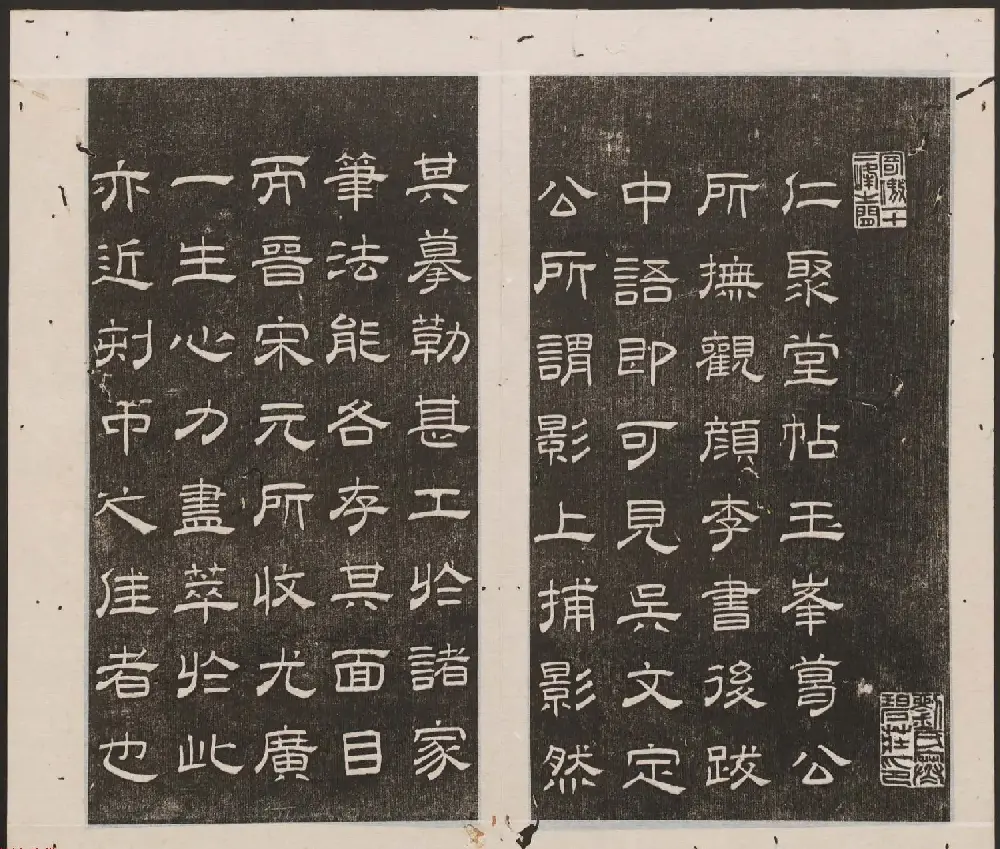 仁聚堂帖玉峯葛公
所撫觀顏李書後跋
中語即可見吳文定
公所謂影上捕影然
劉氏寒碧莊印
其摹勒甚工於諸家
筆法能各存其面目
而晉宋元所收尤廣
一生心力盡萃於此
亦近刻中之佳者也